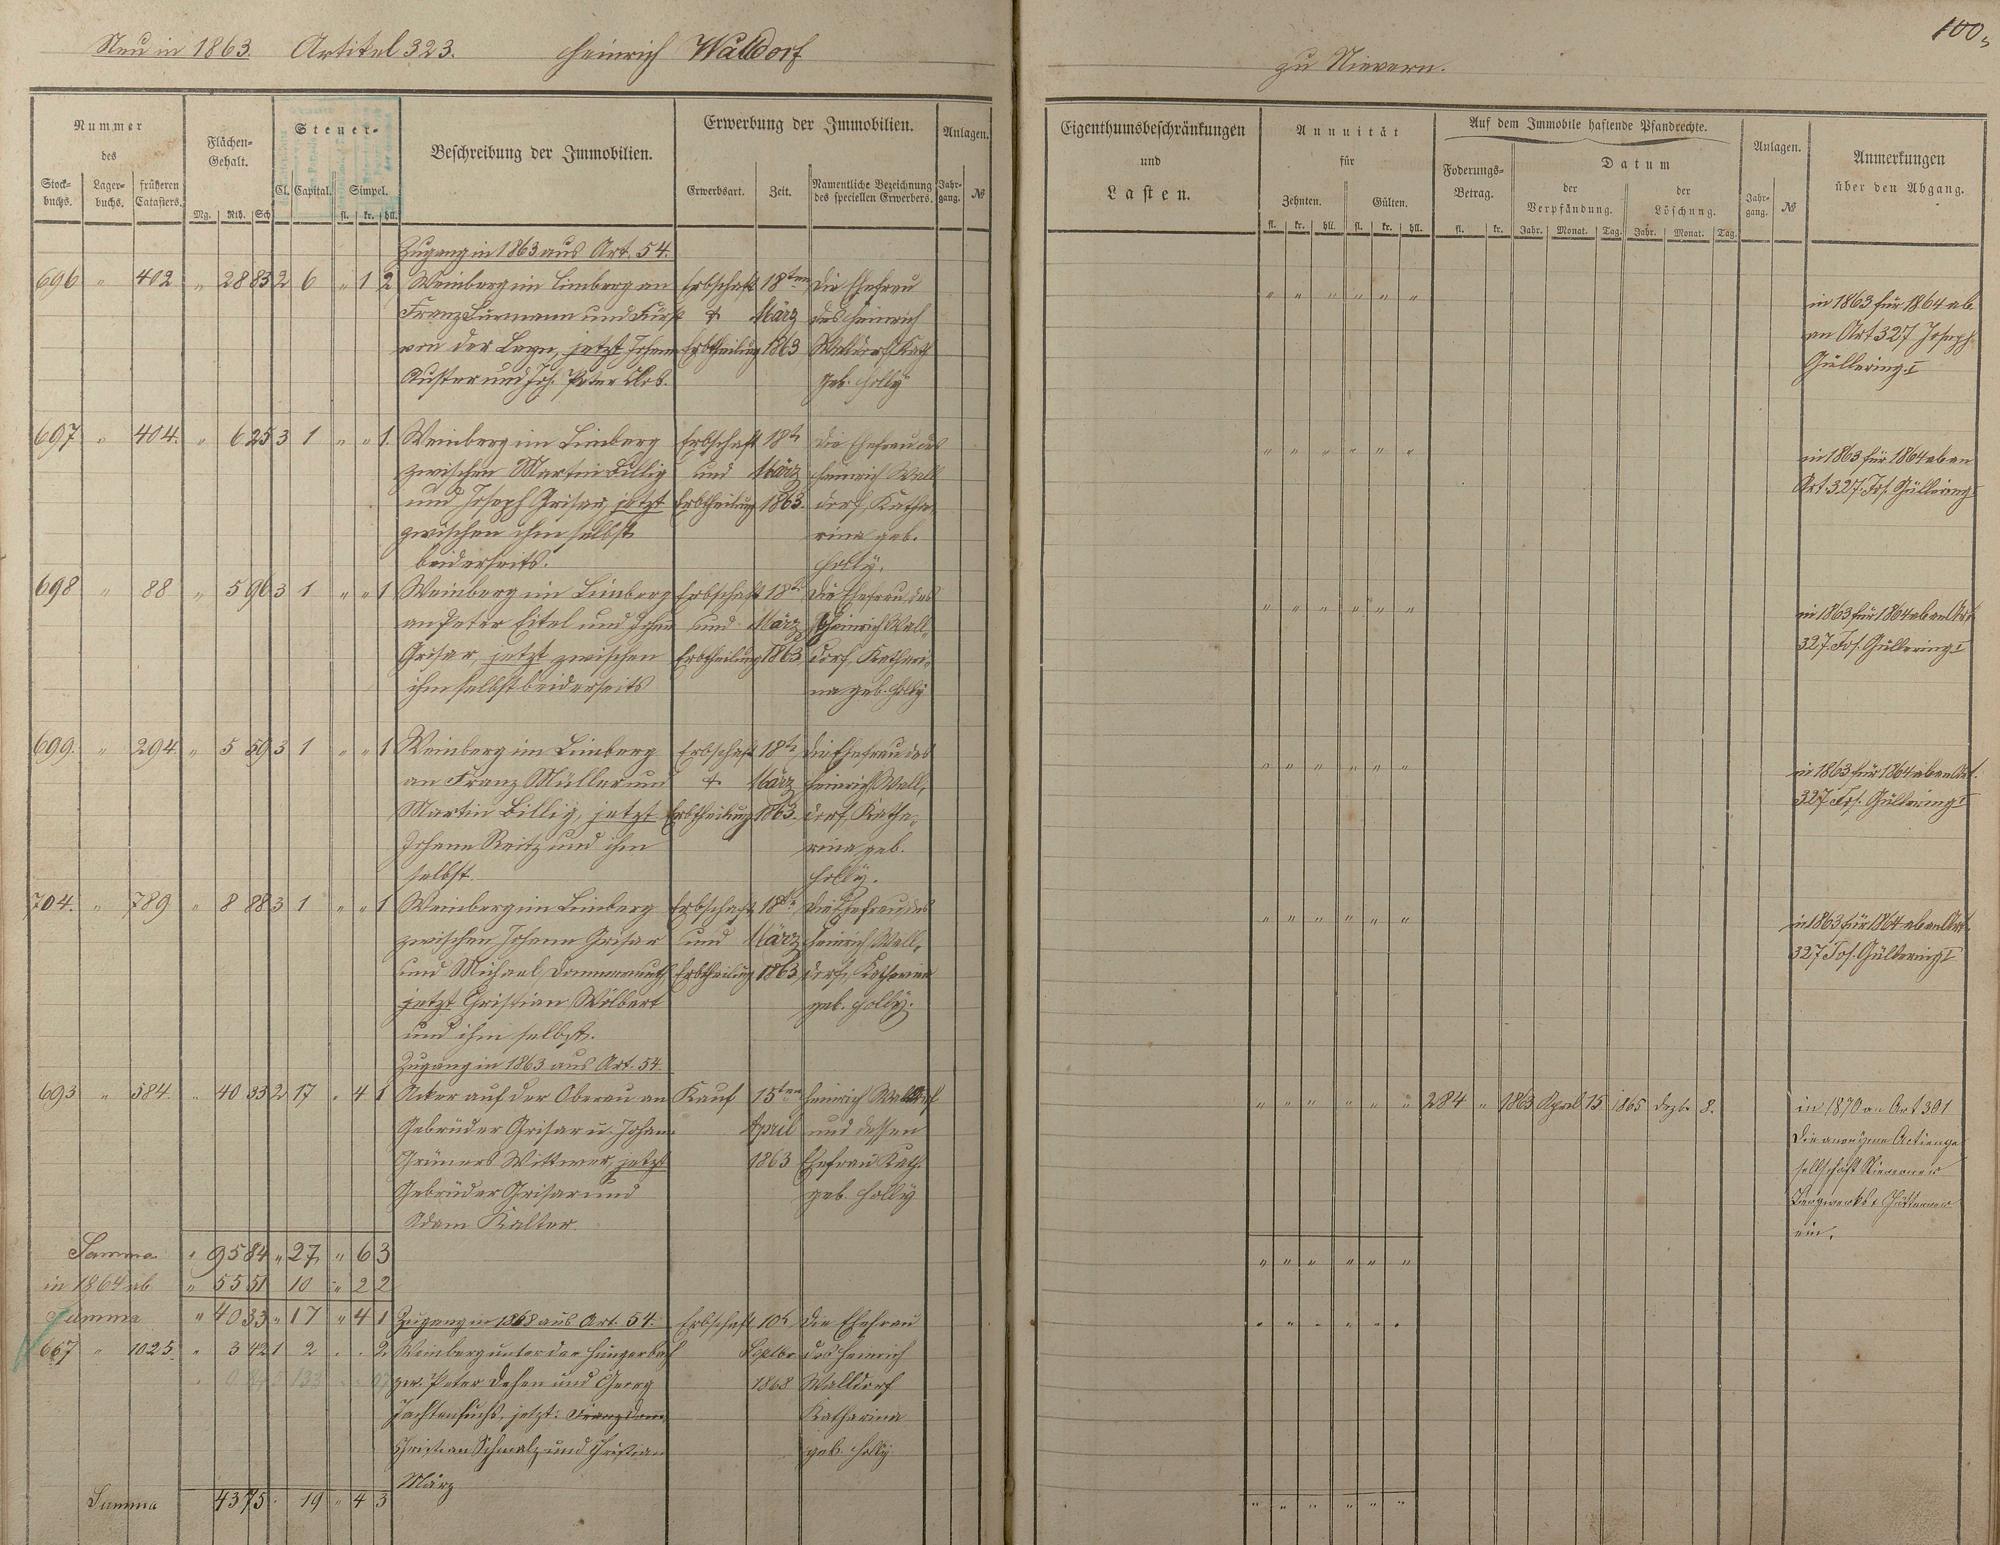 Neu in 1863. Artikel 323. Heinrich Walldorf
zu Nievern.
100
Nummer
des
Stock-
buchs.
Lager-
buchs.
früheren
Catasters.
Flächen-
Gehalt.
Mg. Rth. Sch
Steuer-
Cl. Capital. Simpel.
fl. kr. hll.
Beschreibung der Immobilien.
Erwerbung der Immobilien.
Erwerbsart. Zeit.
Namentliche Bezeichnung
des speciellen Erwerbers.
Anlagen.
Jahr-
gang.
№
Eigenthumsbeschränkungen
und
Lasten.
Annuität
für
Zehnten. Gülten.
fl. kr. hll. fl. kr. hll.
Auf dem Immobile haftende Pfandrechte.
Foderungs-
Betrag.
fl. kr.
Datum
der
Verpfändung.
der
Löschung.
Jahr. Monat. Tag. Jahr. Monat. Tag.
Anlagen.
Jahr-
gang.
№
Anmerkungen
über den Abgang.
Zugang in 1863 aus Art. 54.
696 " 402 " 28 83 2 6 " 1 2 Weinberg im Limberg an Erbschaft 18ten die Ehefrau
" " " " " " in 1863 für 1864 ab
Franz Lurmann und Fürst + März des Heinrich
an Art 327 Joseph
von der Leyen, jetzt Johann Erbtheilung 1863 Walldorf Kath
Güllering I
Kuster und Joh. Peter Klos. geb. Holly
697 " 404. " 6 25 3 1 " " 1. Weinberg im Limberg Erbschaft 18t die Ehefrau des
" " " " " " in 1863 für 1864 ab an
zwischen Martin Billig und März Heinrich Wall
Art. 327. Jos. Güllering I
und Joseph Grisar, jetzt Erbtheilung 1863. dorf, Katha
zwischen ihm selbst rina geb.
beiderseits. Holly.
698 " 88 " 5 96 3 1 " " 1 Weinberg im Limberg Erbschaft 18t die Ehefrau des
" " " " " " in 1863 für 1864 ab an Art
an Peter Eitel und Johann und März Heinrich Wall-
327. Jos. Güllering I
Grisar, jetzt zwischen Erbtheilung 1863 dorf, Kathari-
ihm selbst beiderseits na geb. Holly
699. " 294 " 5 59 3 1 " " 1 Weinberg im Limberg Erbschaft 18t die Ehefrau des
" " " " " " in 1863 für 1864 ab an Art.
an Franz Müller und + März Heinrich Wall-
327 Jos. Güllering I
Martin Billig, jetzt Erbtheilung 1863. dorf, Katha-
Johann Reitz und ihm rina geb.
selbst. Holly.
704. " 789 " 8 88 3 1 " " 1 Weinberg im Limberg Erbschaft 18t die Ehefrau des
" " " " " " in 1863 für 1864 ab an Art.
zwischen Johann Grisar und März Heinrich Wall-
327 Jos. Güllering I
und Michael Dommermuth, Erbtheilung 1863 dorf, Katharina
jetzt Christian Wölbert geb. Holly.
und ihm selbst.
Zugang in 1863 aus Art. 54.
693 " 584. " 40 33 2 17 " 4 1 Acker auf der Oberau an Kauf 15ten Heinrich Walldorf
" " " " " " 284 " 1863 April 15 1865 Dezbr 8. in 1870 an Art 301
Gebrüder Grisar u. Johann April und dessen
die anonyme Actienge
Grüners Wittwer, jetzt 1863 Ehefrau Kath.
sellschaft Nieverner
Gebrüder Grisar und geb. Holly
Bergwerks & Hüttenver
Adam Kalter.
ein.
Summa " 95 84 " 27 " 6 3 " " " " " "
in 1864 ab " 55 51 10 " 2 2
Summa " 40 33 " 17 " 4 1 Zugang in 1868 aus Art. 54. Erbschaft 10t die Ehefrau
" " " " " "
667 " 1025. " 3 42 1 2 " " 2 Weinberg unter der Hungerbach Septbr des Heinrich
zw. Peter Dehen und Georg 1868 Walldorf
Jachtenfuchs, jetzt: Katharina
Christian Schmalz und Christian geb. Holly
März
Summa 43 75 " 19 " 4 3 " " " " " "